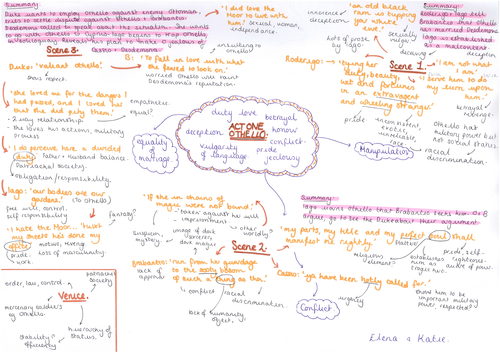 Summary:
Duke wants to employ Othello against enemy Ottoman,
tries to settle dispute against Othello & Brabantio.
to go with Othello to Cyprus. Iago begins to trap Othello,
Scene 3.
Duke: 'valiant Othello'.
shows respect.
'she loved me for the dangers I
had passed, and I loved her
that she did pity them'.
2 way relationship
she loves his actions, military
prowess
'I do perceive here a divided
duty'
father + husband balance.
patriarchal society.
obligation/responsibility.
Iago: 'our bodies are our
gardens'. (to Othello)
free will, control.
self responsibility
'I hate the Moor... 'twixt
my sheets he has done my
office'
motive, revenge
loss of masculinity
pride.
work
empathetic.
equal?
fantasy?
'I did love the
Moor to live with
him'
sexual, woman,
independence.
B: 'To fall in love with what
she feared to look on'.
worried Othello will taint
Desdemona's reputation.
unwilling to
Othello?
innocence
deception
'an old black
ram is tupping
your white
ewe'.
lots of probe
by Iago
sexually
vulgar
deceiving
Summary:
Roderigo + Iago tell
Brabantio that Othello
has married Desdemona
Iago is established
as malcontent
deception
Scene 1.
'I am not what
I am'
'I serve him to serve
my turn upon
him'
betrayal
revenge.
Roderigo: 'tying her
duty, beauty,
wit and fortunes
in an extravagant
and wheeling stranger'.
pride
inconsistent
exotic,
race.
Othello has
military power but
not social status.
racial
discrimination.
Manipulation
equality of
marriage
duty love betrayal
deception
ACT ONE
OTHELLO.
honour
conflict
vulgarity
of language
pride
jealousy
'If she in chains of
magic were not bound'.
taken against his will
imprisonment
other wordly?
suspicion,
mystery.
image of dark
sorcerer,
dark magic
Scene 2.
Brabantio: 'run from her guardage
to the sooty bosom
of such a thing as thou'.
lack of
approval
conflict
racial
discrimination.
lack of humanity
object.
Summary:
Iago warns Othello that Brabantio seeks him. O & B
argue, go to see the Duke about their argument
'my parts, my title and my perfect soul shall
manifest me rightly'.
religious
element?
pride, self-
establishes righteous-
him as ness.
tragic hero. sense of power.
Cassio: 'you have been hotly called for'.
urgency
shows him to be
important military
power, respected?
Conflict.
Venice.
order, law, control.
patriarchal
society
mercenary soldiers
eg Othello.
hierarchy of
status.
stability +
efficiency
Elena & Katie.